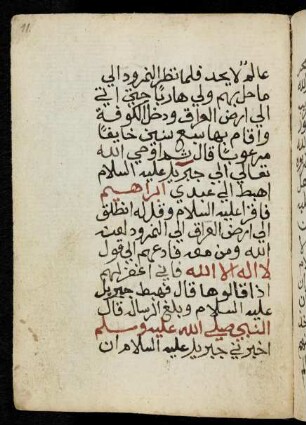 عالم لا يحد فلما نظر النمرود الى
ما حل بهم ولي هاربا حتى اتي
الى ارض العراق ودخل الكوفة
واقام بها سبع سنين خايفا
مرعوبا قال ثم اوحي الله
تعالى الى جبريل عليه السلام
اهبط الى عبدي ابراهيم
فاقرا عليه السلام وقل له انطلق
الى ارض العراق الى النمرود لعنه
الله ومن معه فادعهم الى قول
لا اله الا الله فاني اغفر لهم
اذا قالوها قال فهبط جبريل
عليه السلام وبلغ الرساله قال
النبي صلى الله عليه وسلم
اخبرني جبريل عليه السلام ان